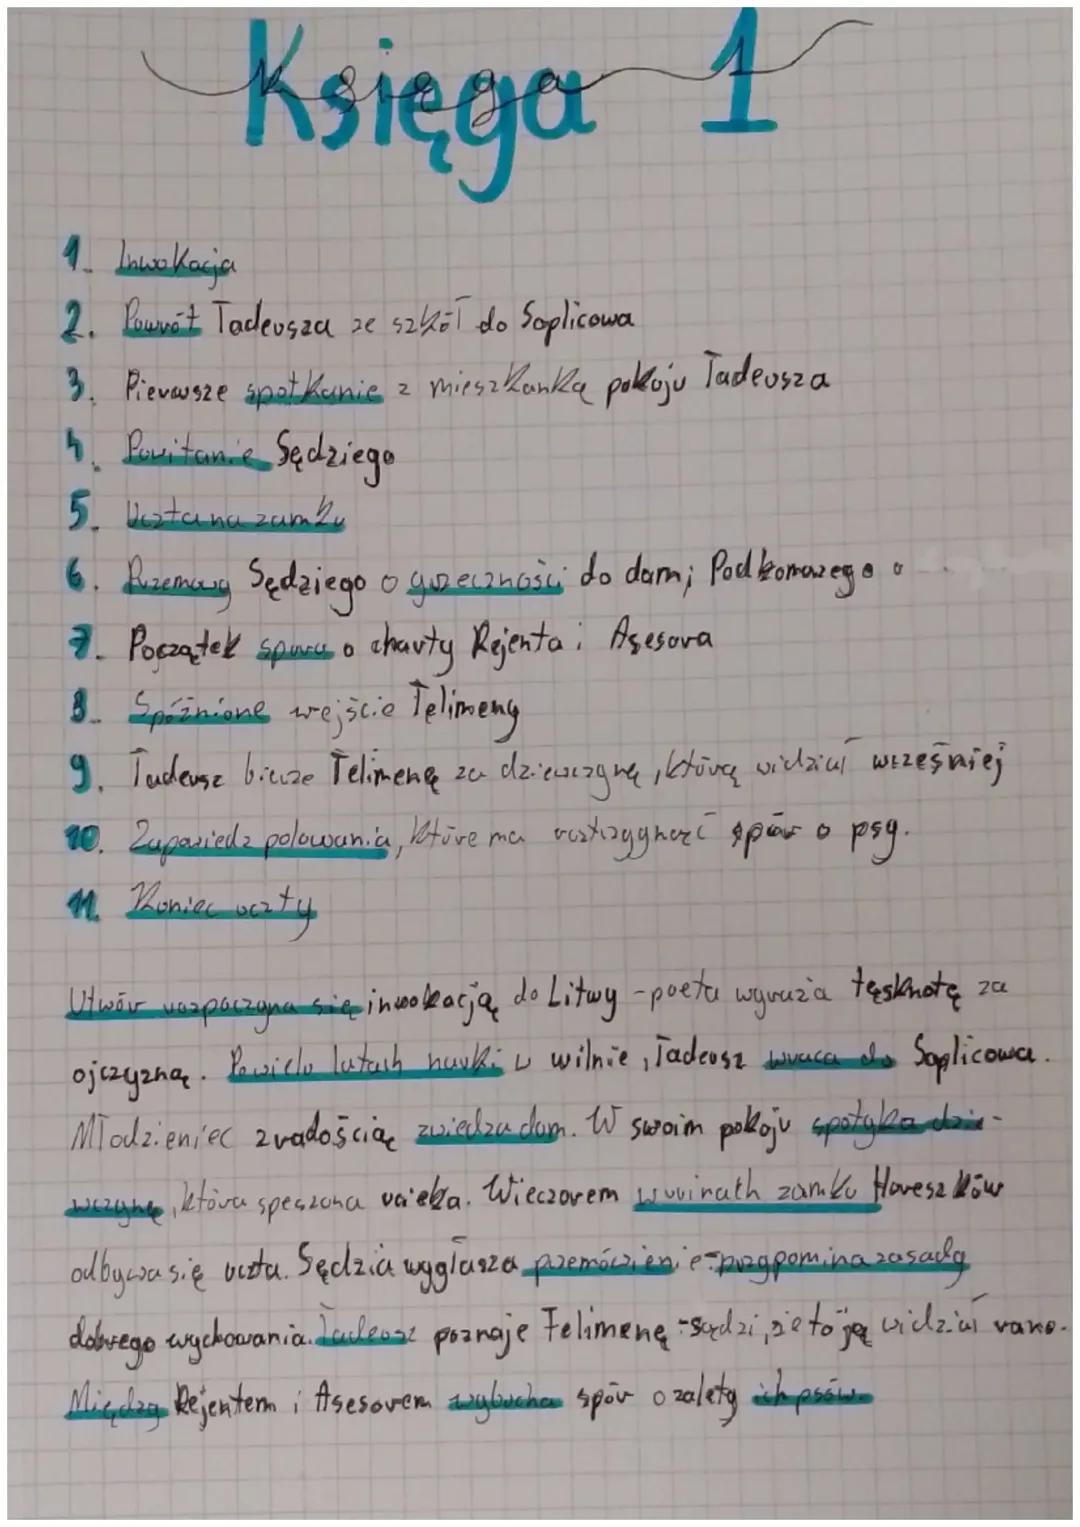 Księga 1
1. Inwokacja
2. Powrót Tadeusza ze szkół do Soplicowa
3. Pierwsze spotkanie z mieszkanką pokoju Tadeusza
4. Powitanie Sędziego
5. Uczta na zamku
6. Przemowy Sędziego o grzeczności do dam; Podkomorzego o
7. Początek sporu o charty Rejenta i Asesora
8. Spóźnione wejście Telimeny
9. Tadeusz bierze Telimenę za dziewczynę, którą widział wcześniej
10. Zapowiedź polowania, które ma rozstrzygnąć spór o psy.
11. Koniec uczty
Utwór rozpoczyna się inwokacją do Litwy - poeta wyraża tęsknotę za
ojczyzną. Po wielu latach nauki w wilnie, Tadeusz wraca do Soplicowa.
Młodzieniec z radością zwiedza dom. W swoim pokoju spotyka dzie-
wczynę, która speszona ucieka. Wieczorem w ruinach zamku Horeszków
odbywa się uczta. Sędzia wygłasza przemówienie - przypomina zasady
dobrego wychowania. Tadeusz poznaje Telimenę - sądzi, że to ją widział rano.
Między Rejentem i Asesorem wybucha spór o zalety ich psów.